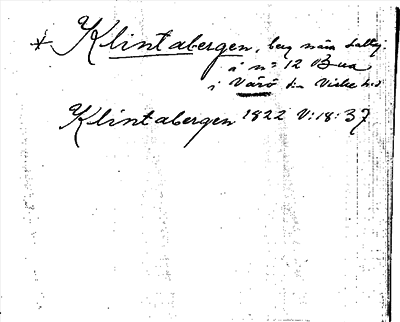 Klintabergen, berg nära
å nº 12 Bua
i Värö sn Viske hd
Klintabergen 1822 V:18:37